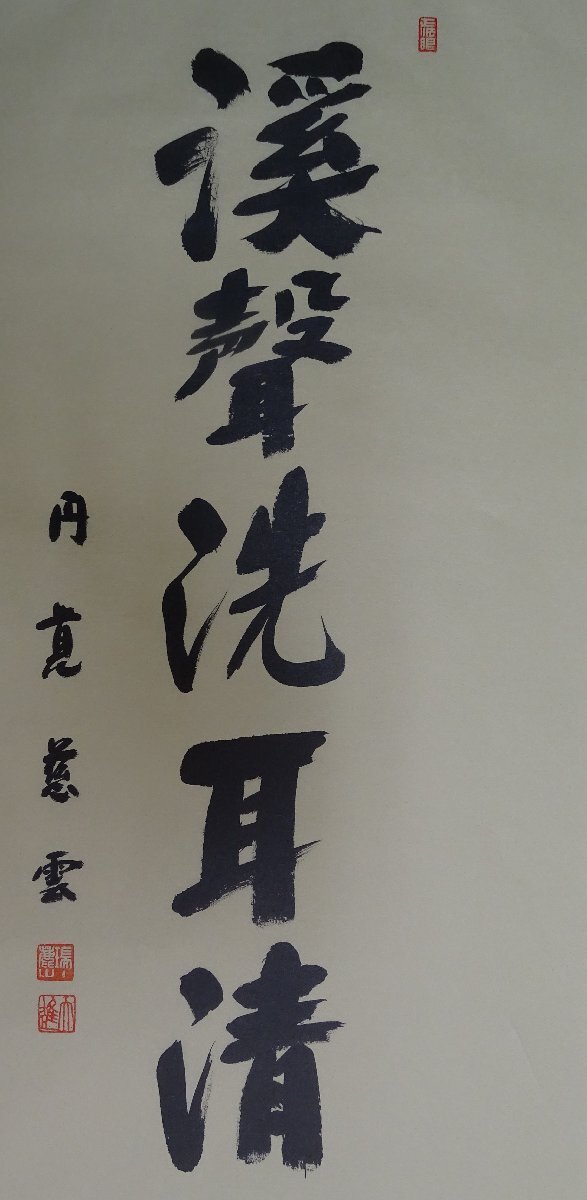 溪聲洗耳清
円覚慈雲